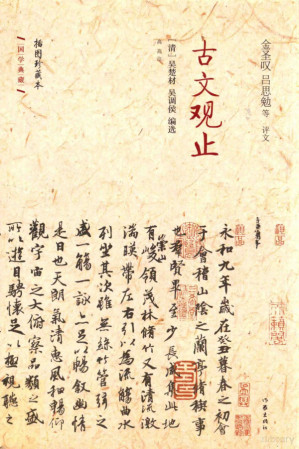 金圣叹 吕思勉等 评文
古文观止
[清] 吴楚材 吴调侯 编选
插图珍藏本
国学典藏
永和九年歲在癸丑暮春之初會
于會稽山陰之蘭亭脩禊事
也羣賢畢至少長咸集此地
有崇山峻領茂林脩竹又有清流激
湍暎帶左右引以為流觴曲水
列坐其次雖無絲竹管弦之
盛一觴一詠亦足以暢敘幽情
是日也天朗氣清惠風和暢仰
觀宇宙之大俯察品類之盛
所以遊目騁懷足以極視聽之
作家出版社